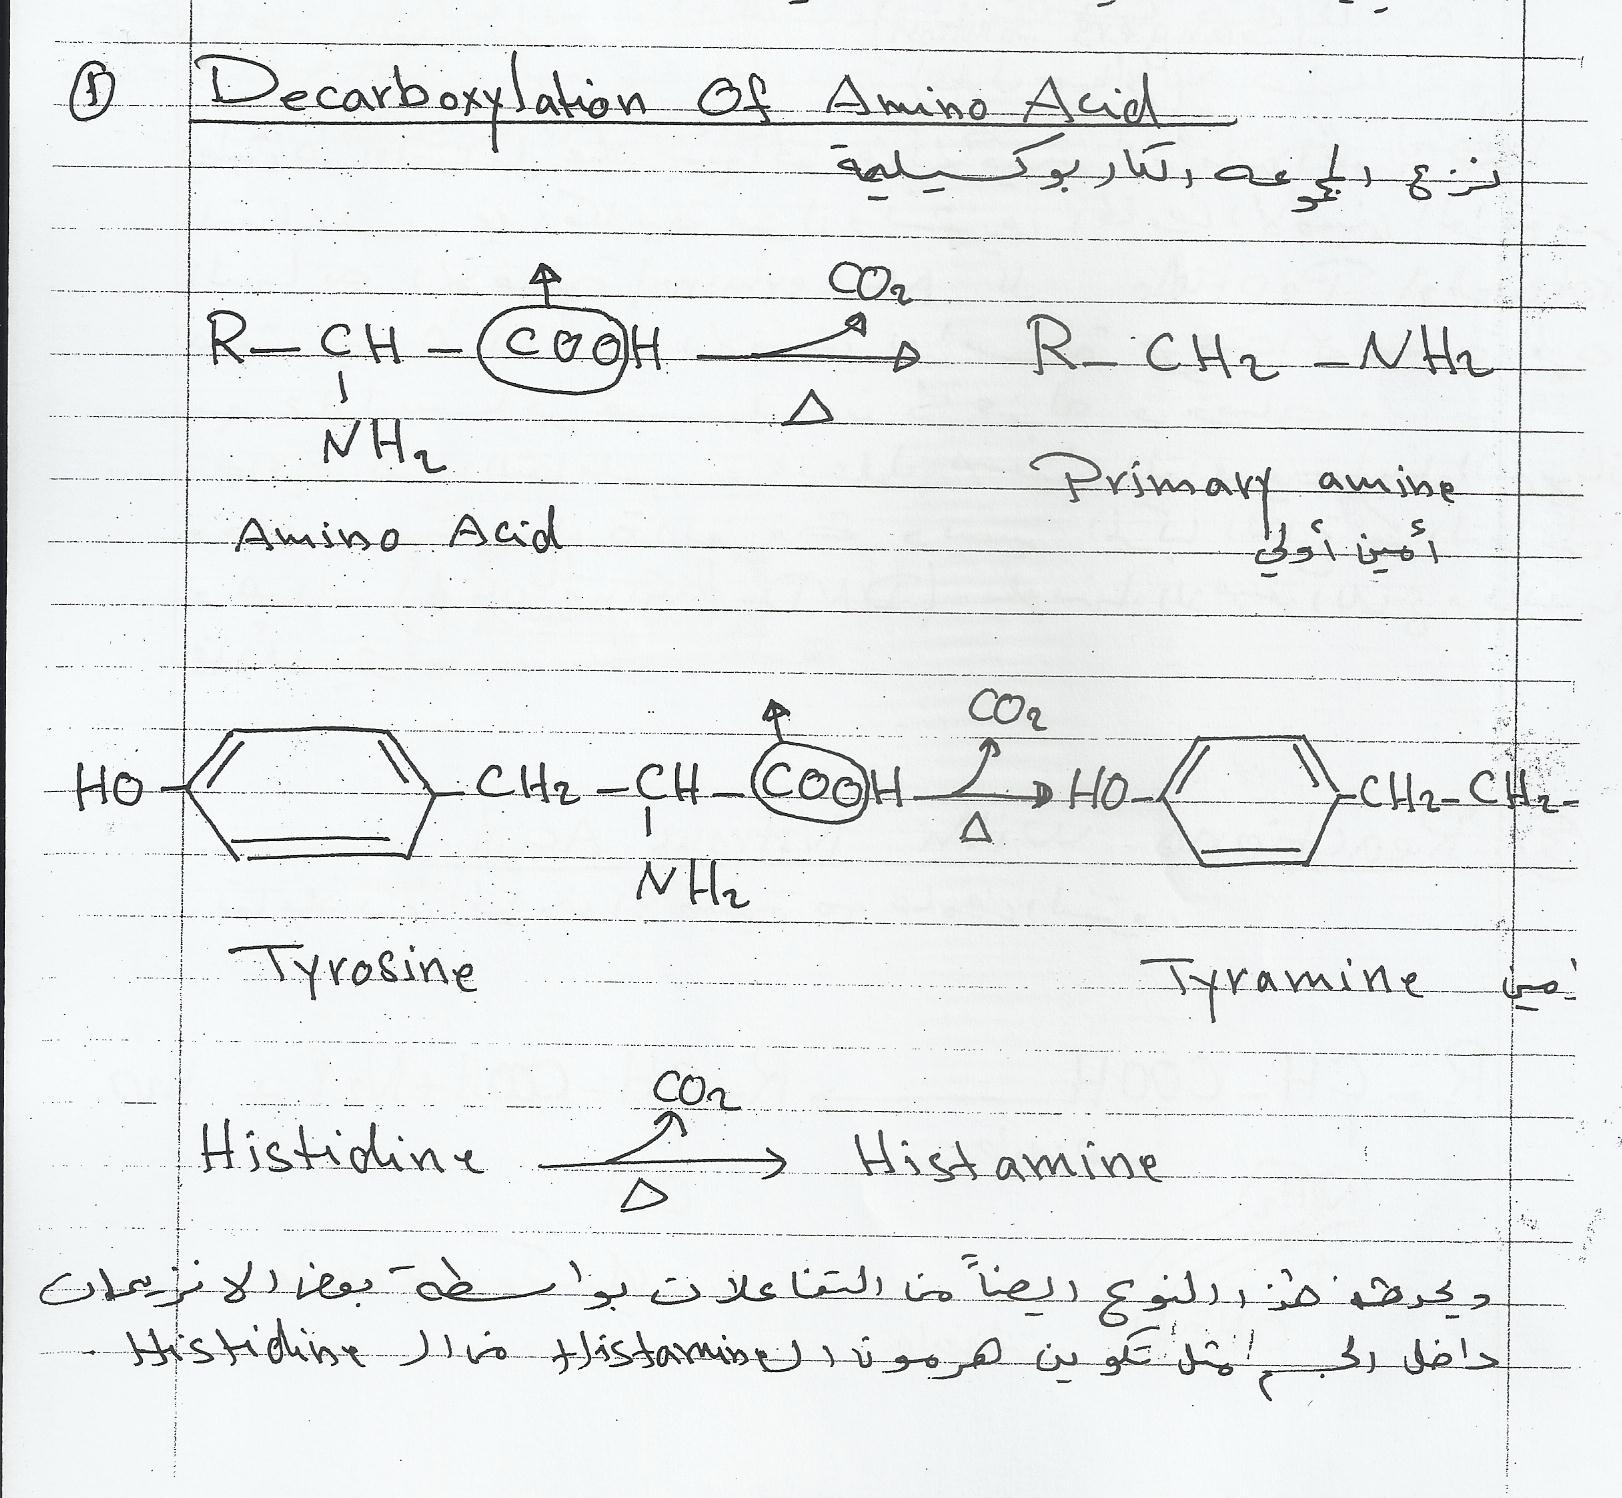 ① Decarboxylation Of Amino Acid
نزع المجموعه الكاربوكسيلية
R – CH – COOH → R – CH2 – NH2
CO2
Δ
NH2
Primary amine
أمين أولي
Amino Acid
HO CH2 – CH – COOH → HO CH2 – CH2 –
CO2
Δ
NH2
Tyrosine
Tyramine أمين
CO2
Histidine → Histamine
Δ
ويحدث هذا النوع ايضاً من التفاعلات بواسطة بعض الانزيمات
داخل الجسم مثل تكوين هرمون ال Histamine من ال Histidine